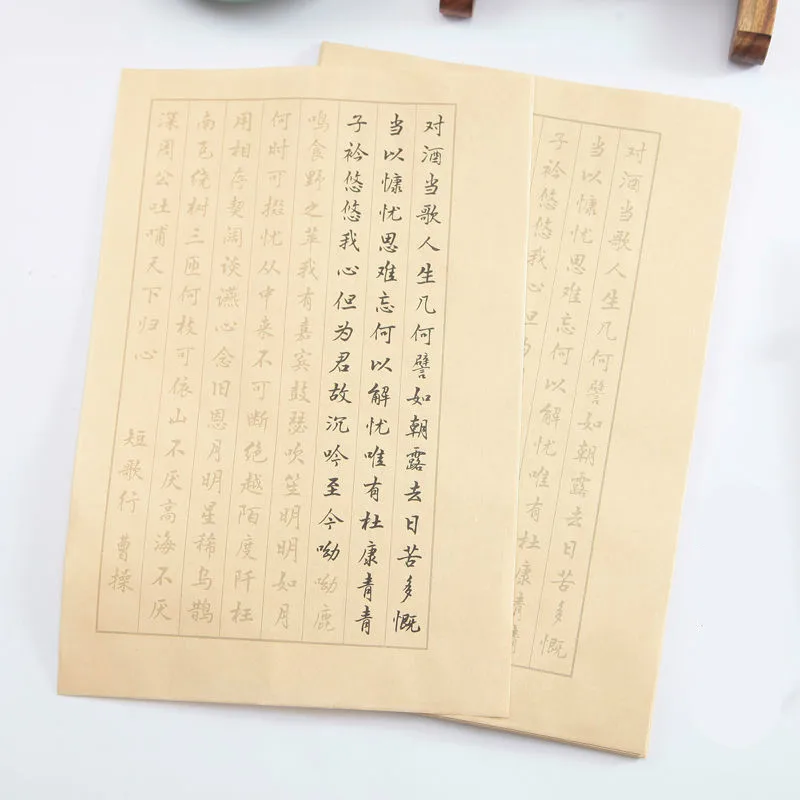 对酒当歌人生几何譬如朝露去日苦多慨
当以慷忧思难忘何以解忧唯有杜康青青
子衿悠悠我心但为君故沉吟至今呦呦鹿
鸣食野之苹我有嘉宾鼓瑟吹笙明明如月
何时可掇忧从中来不可断绝越陌度阡枉
用相存契阔谈䜩心念旧恩月明星稀乌鹊
南飞绕树三匝何枝可依山不厌高海不厌
深周公吐哺天下归心
短歌行 曹操
对酒当歌人生几何譬如朝露去日苦多慨
当以慷忧思难忘何以解忧唯有杜康青青
子衿悠悠我心但为